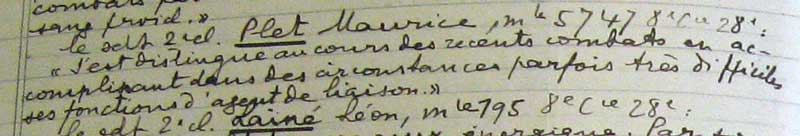 combats
sang froid."
le sdt 2ecl. Plet Maurice, mle 5747 8eCie 28e:
"S'est distingué au cours des récents combats en ac-
complissant dans des circonstances parfois très difficiles
ses fonctions d'agent de liaison."
le sdt 2ecl. Lainé Léon, mle 795 8eCie 28e:
énergique. Par